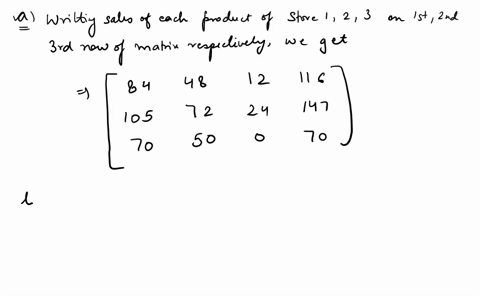 a) Writtiy sales of each product of Store 1, 2, 3 on 1st, 2nd
3rd row of matrix respectively, we get
⇒ [ 84 48 12 116
105 72 24 147
70 50 0 70 ]